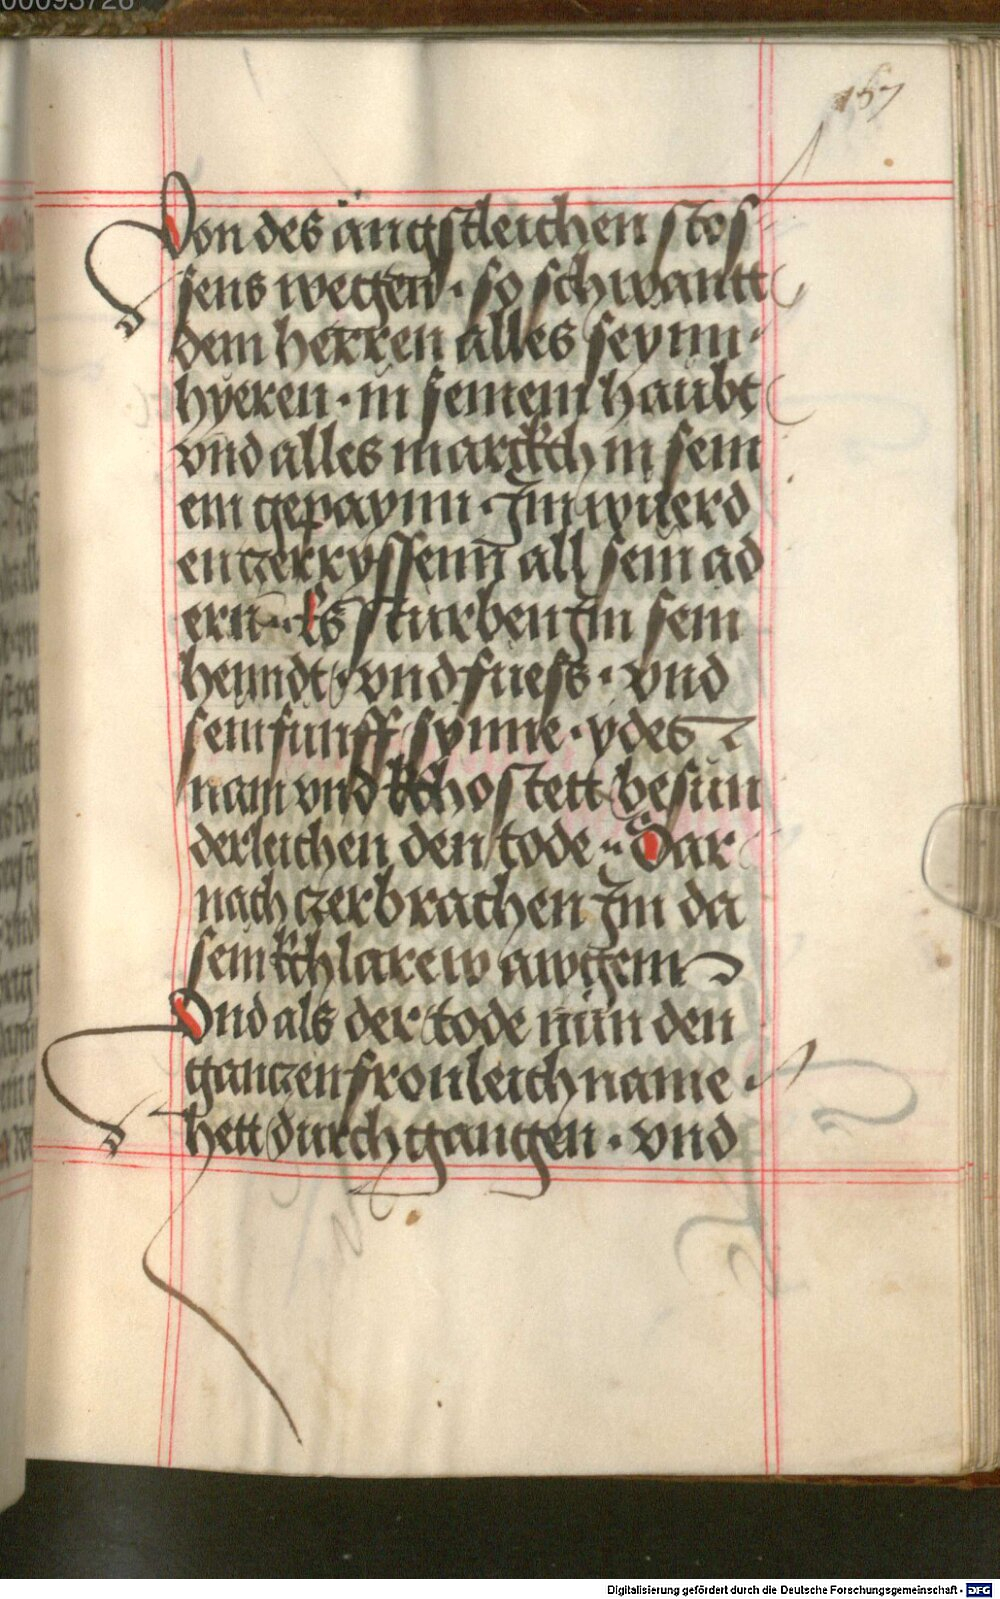 00093728
157
Von des ängstleichen stos
sens wegen · so schwantt
dem herren alles seynn ·
hyeren · in seinem haubt
vnd alles marckch in sein
em gepaynn · Im wuerd
en zerryssenn all sein ad
ern · Es sturben Im sein
henndt vnd fuess · vnd
sein funff synne · ydes
nam vnd kchostett besun
derleichen den tode · Dar
nach czerbrachen Im da
sein kchlarew awgem
Vnd als der tode nun den
ganczen fronleichname ·
hett durchgangen · vnd
Digitalisierung gefördert durch die Deutsche Forschungsgemeinschaft - DFG